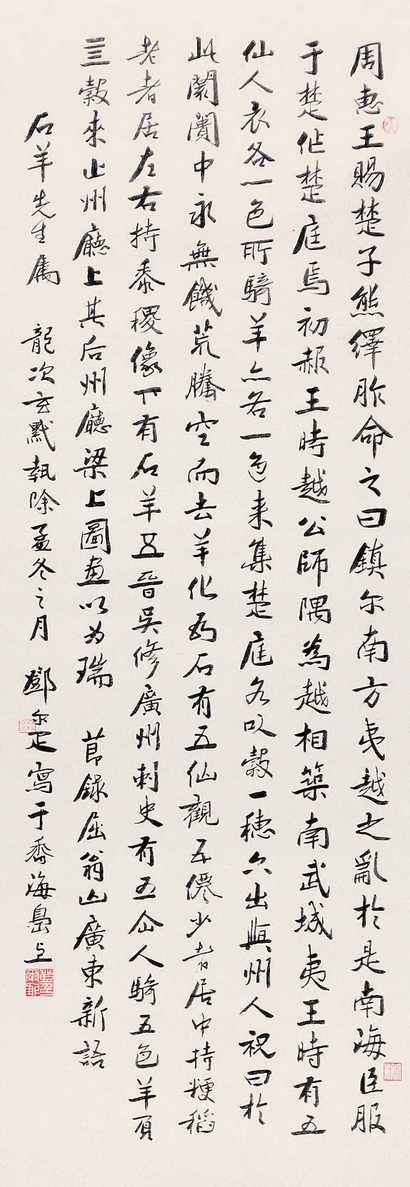 周惠王賜楚子熊繹胙命之曰鎮尔南方夷越之亂於是南海臣服
于楚作楚庭焉初赧王時越公師隅為越相築南武城夷王時有五
仙人衣各一色所騎羊亦各一色来集楚庭各以穀一穗六出與州人祝曰於
此闤闠中永無饑荒騰空而去羊化為石有五仙觀五僊少者居中持粳稻
老者居左右持黍稷像下有石羊五晉吳修廣州刺史有五仙人騎五色羊負
五穀來止州廳上其后州廳梁上圖畫以为瑞 節錄屈翁山廣東新語
石羊先生属 龍次玄黓執除孟冬之月 鄧尔疋寫于香海島上